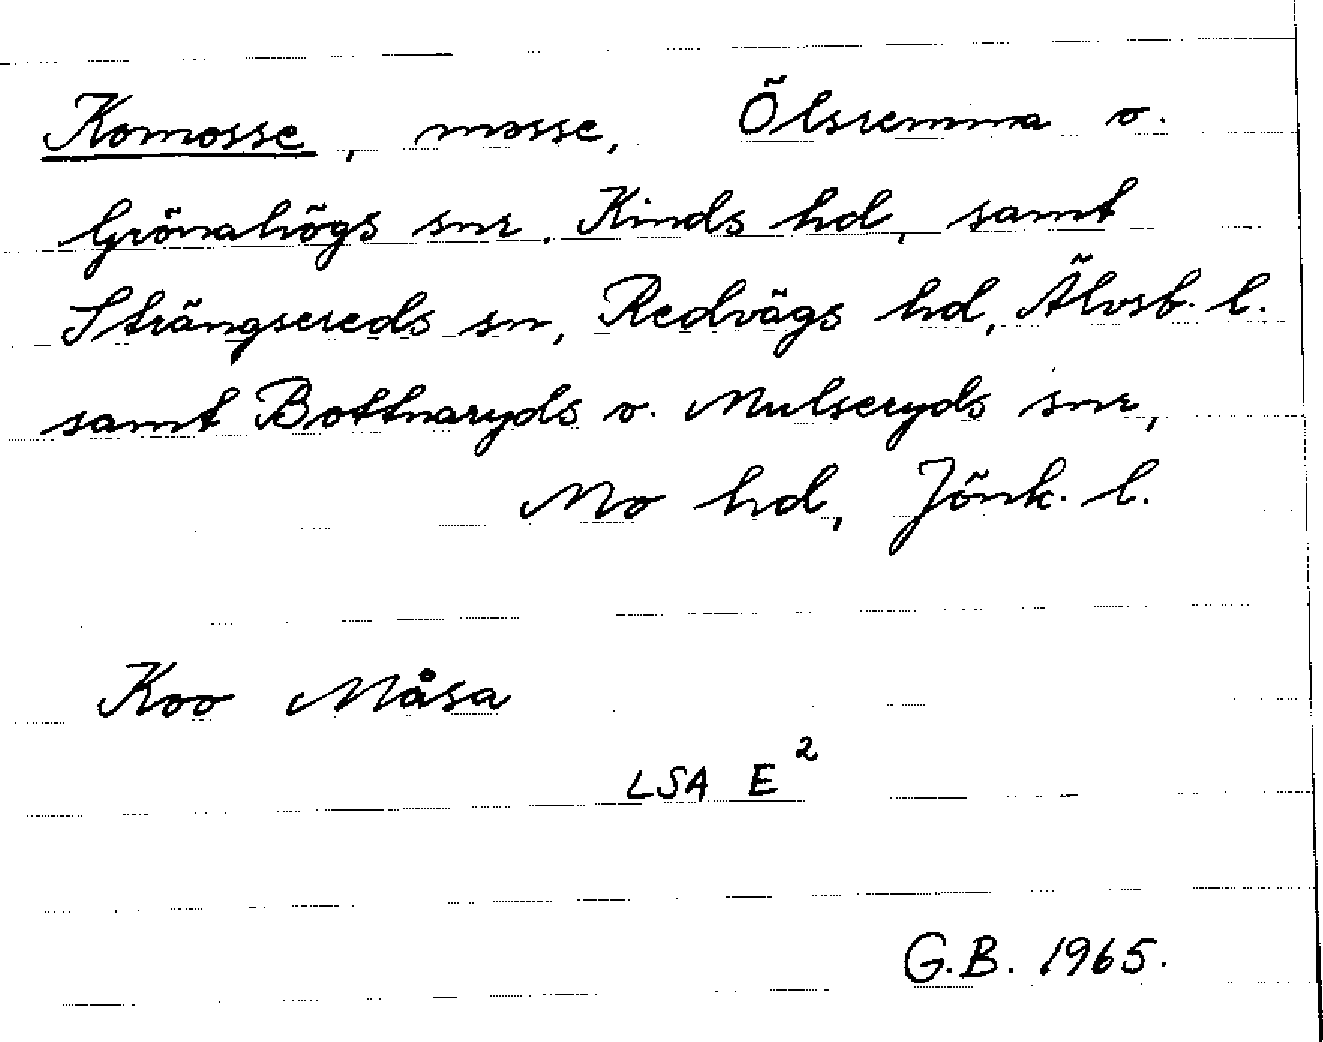 Komosse, mosse, Ölsremma o.
Grönahögs snr. Kinds hd, samt
Strängsereds sn, Redvägs hd, Älvsb. l.
samt Bottnaryds o. Mulseryds snr,
Mo hd, Jönk. l.
Koo Måsa
LSA E²
G.B. 1965.